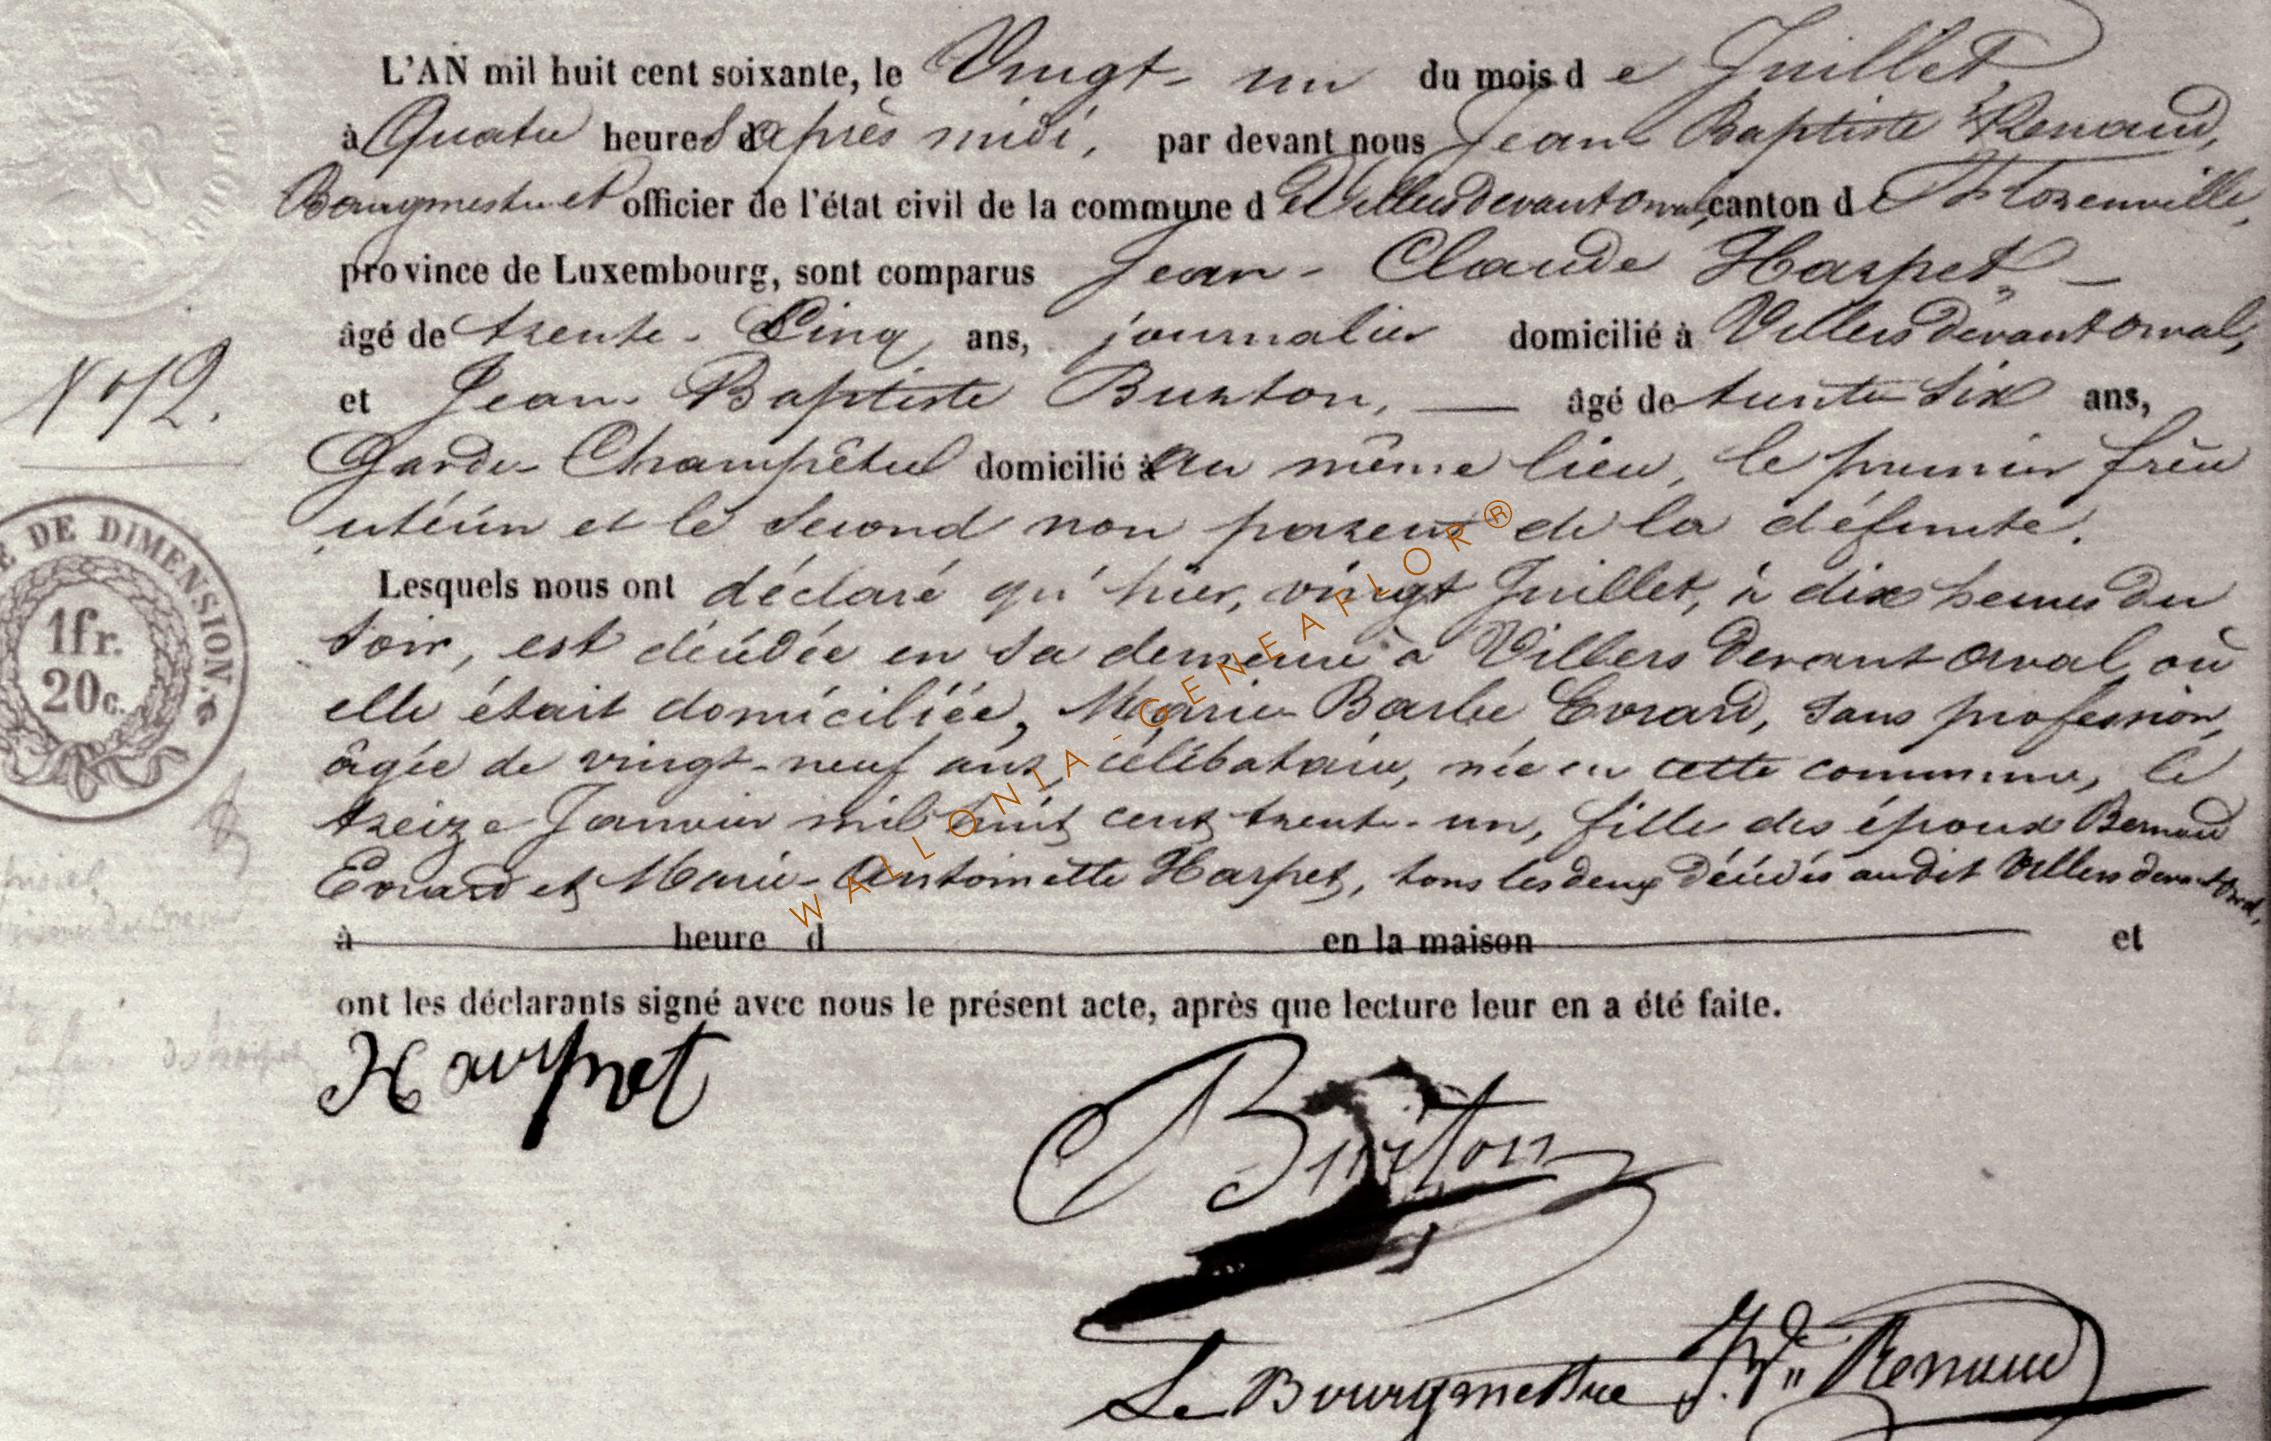 L'AN mil huit cent soixante, le Vingt- un du mois de Juillet,
à Quatre heures d'après midi, par devant nous Jean Baptiste Renaud,
Bourgmestre et officier de l'état civil de la commune de Villers devant Orval, canton de Florenville,
province de Luxembourg, sont comparus Jean- Claude Harpet, —
âgé de trente- Cinq ans, journalier domicilié à Villers devant Orval,
N° 12.
et Jean- Baptiste Burton, — âgé de trente six ans,
Garde Champêtre domicilié à au même lieu, le premier frère
utérin et le second non parent de la défunte.
E DE DIMENSION.
1fr.
20c.
Lesquels nous ont déclaré qu'hier, vingt Juillet, à dix heures du
soir, est décédée en sa demeure à Villers devant Orval où
elle était domiciliée, Marie- Barbe Evrard, sans profession,
âgée de vingt-neuf ans, célibataire, née en cette commune, le
treize Janvier mil huit cent trente- un, fille des époux Bernard
Evrard et Marie- Antoinette Harpet, tous les deux décédés audit Villers devant Orval,
à heure d en la maison et
ont les déclarants signé avec nous le présent acte, après que lecture leur en a été faite.
Harpet
Burton
Le Bourgmestre J. Bte Renaud
WALLONIA-GENEAFLOR®